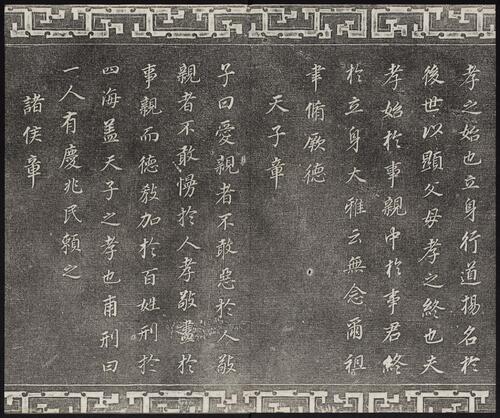 孝之始也立身行道揚名於
後世以顯父母孝之終也夫
孝始於事親中於事君終
於立身大雅云無念爾祖
聿脩厥德
天子章
子曰愛親者不敢惡於人敬
親者不敢慢於人孝敬盡於
事親而德敎加於百姓刑於
四海盖天子之孝也甫刑曰
一人有慶兆民賴之
諸侯章